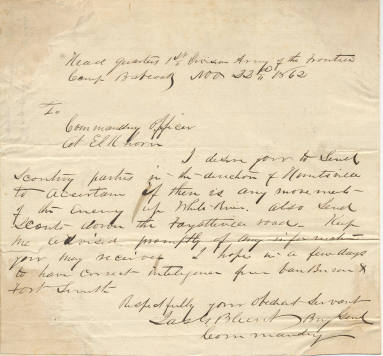 Head Quarters 1st Division Army of the Frontier
Camp Babcock Nov 22d 1862
To
Commanding Officer
at Elkhorn
I desire you to Send
Scouting parties in the direction of Huntsville
to ascertain if there is any movement
of the enemy up White River. also Send
Scouts down the Fayetteville road. Keep
me advised promptly of any information
you may receive. I hope in a few days
to have correct inteligence from Van Buren &
Fort Smith
Respectfully your Obedient Servant
Jas G Blunt Brig Genl
Commanding